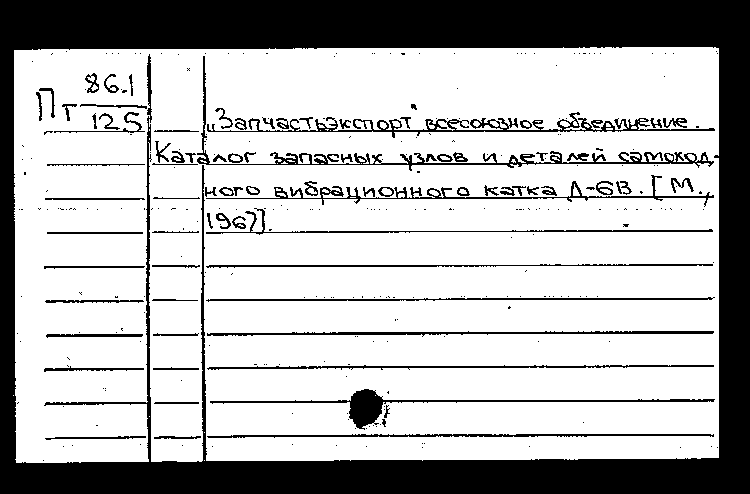 Пт 86.1
12.5
„Запчастьэкспорт" всесоюзное объединение.
Каталог запасных узлов и деталей самоход-
ного вибрационного катка Д-6В. [М.,
1967].